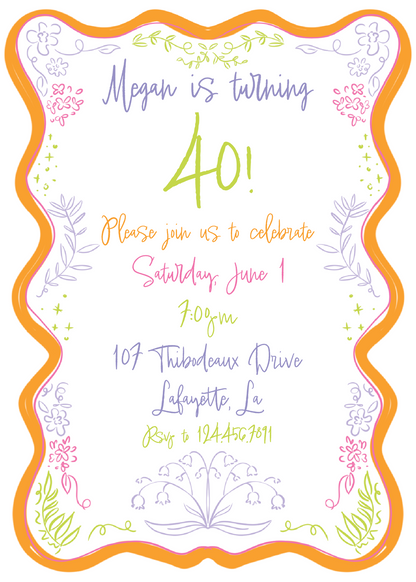 Megan is turning
40!
Please join us to celebrate
Saturday, June 1
7:00pm
107 Thibodeaux Drive
Lafayette, La
Rsvp to 124.456.7891